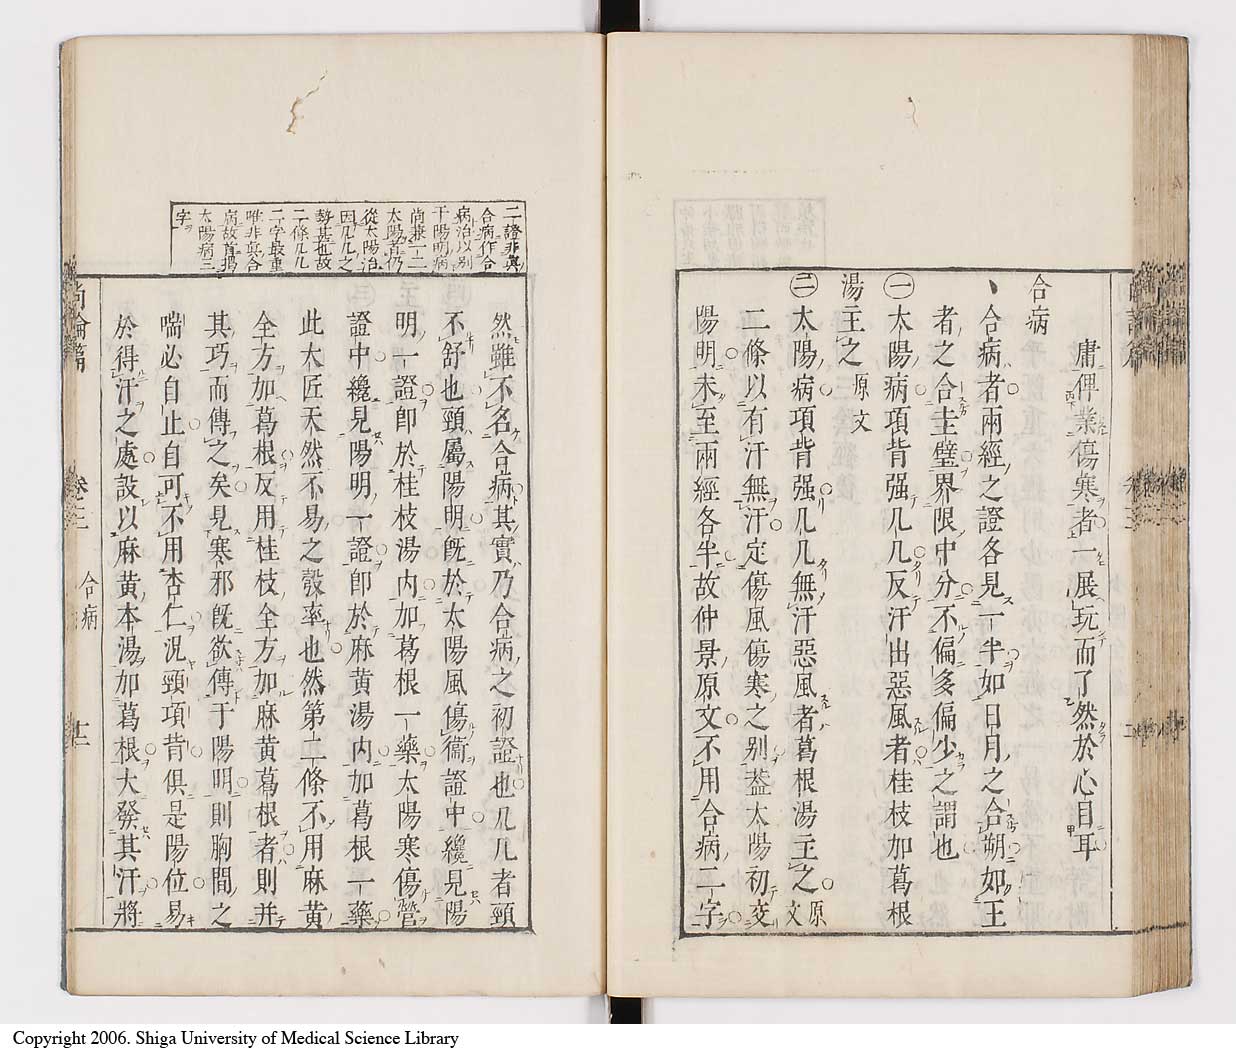 庸俾業傷寒者一展玩而了然於心目耳
合病
合病者兩經之證各見一半如日月之合朔如王
者之合圭璧界限中分不偏多偏少之謂也
㊀太陽病項背强几几反汗出惡風者桂枝加葛根
湯主之原文
㊁太陽病項背强几几無汗惡風者葛根湯主之原文
二條以有汗無汗定傷風傷寒之别葢太陽初交
陽明未至兩經各半故仲景原文不用合病二字
二證非眞
合病作合
病治以别
于陽明病
尚兼一二
太陽者仍
從太陽治
因几几之
勢甚也故
二條几几
二字最重
唯非眞合
病故首揭
太陽病三
字
然雖不名合病其實乃合病之初證也几几者頸
不舒也頸屬陽明既於太陽風傷衞證中纔見陽
明一證卽於桂枝湯内加葛根一藥太陽寒傷營
證中纔見陽明一證卽於麻黄湯内加葛根一藥
此大匠天然不易之彀率也然第二條不用麻黄
全方加葛根反用桂枝全方加麻黄葛根者則并
其巧而傳之矣見寒邪既欲傳于陽明則胸間之
喘必自止自可不用杏仁况頸項背俱是陽位易
於得汗之處設以麻黄本湯加葛根大發其汗將
尚論篇 卷三 合病 十二
Copyright 2006. Shiga University of Medical Science Library